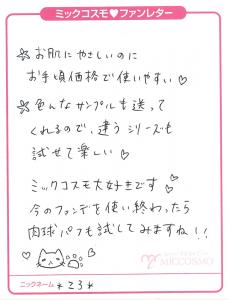 ミックコスモ♥ファンレター
☆お肌にやさしいのに
お手頃価格で使いやすい♡
☆色んなサンプルも送って
くれるので、違うシリーズも
試せて楽しい♡
ミックコスモ大好きです♡
今のファンデを使い終わったら
肉球パフも試してみますね!!
MICCOSMO
ニックネーム *23*